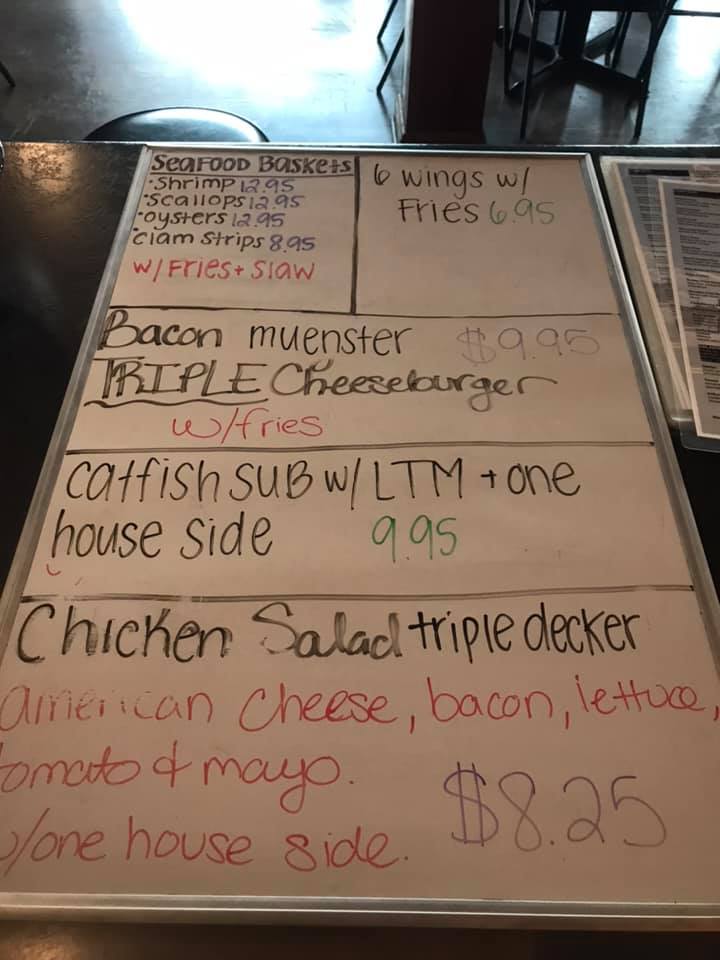 SEAFOOD BASKETS
·Shrimp 12.95
·Scallops 12.95
·oysters 12.95
·clam strips 8.95
W/FRIES+ Slaw
6 wings w/
FRIES 6.95
Bacon muenster $9.95
TRIPLE Cheeseburger
w/fries
catfish SUB w/ LTM + one
house side 9.95
Chicken Salad triple decker
american cheese, bacon, lettuce,
tomato & mayo.
w/one house side. $8.25